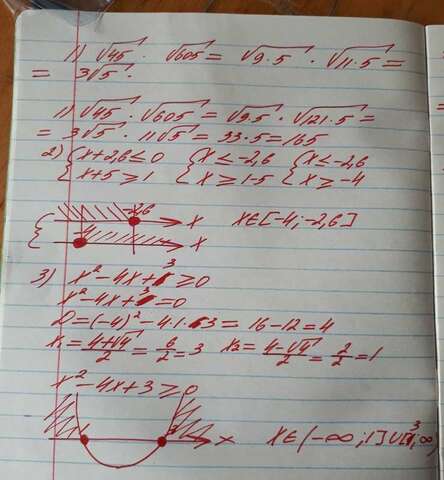 1) √45 · √605 = √9·5 · √11·5 =
= 3√5 ·
1) √45 · √605 = √9·5 · √121·5 =
= 3√5 · 11√5 = 33·5 = 165
2) { x+2,6 ≤ 0 { x ≤ -2,6 { x ≤ -2,6
x+5 ≥ 1 x ≥ 1-5 x ≥ -4
-2,6 x x∈[-4; -2,6]
-4 x
3) x² - 4x + 3 ≥ 0
x² - 4x + 3 = 0
D = (-4)² - 4·1·3 = 16 - 12 = 4
x₁ = 4+√4/2 = 6/2 = 3 x₂ = 4-√4/2 = 2/2 = 1
x² - 4x + 3 ≥ 0
1 3 x x∈(-∞; 1]∪[3; ∞)